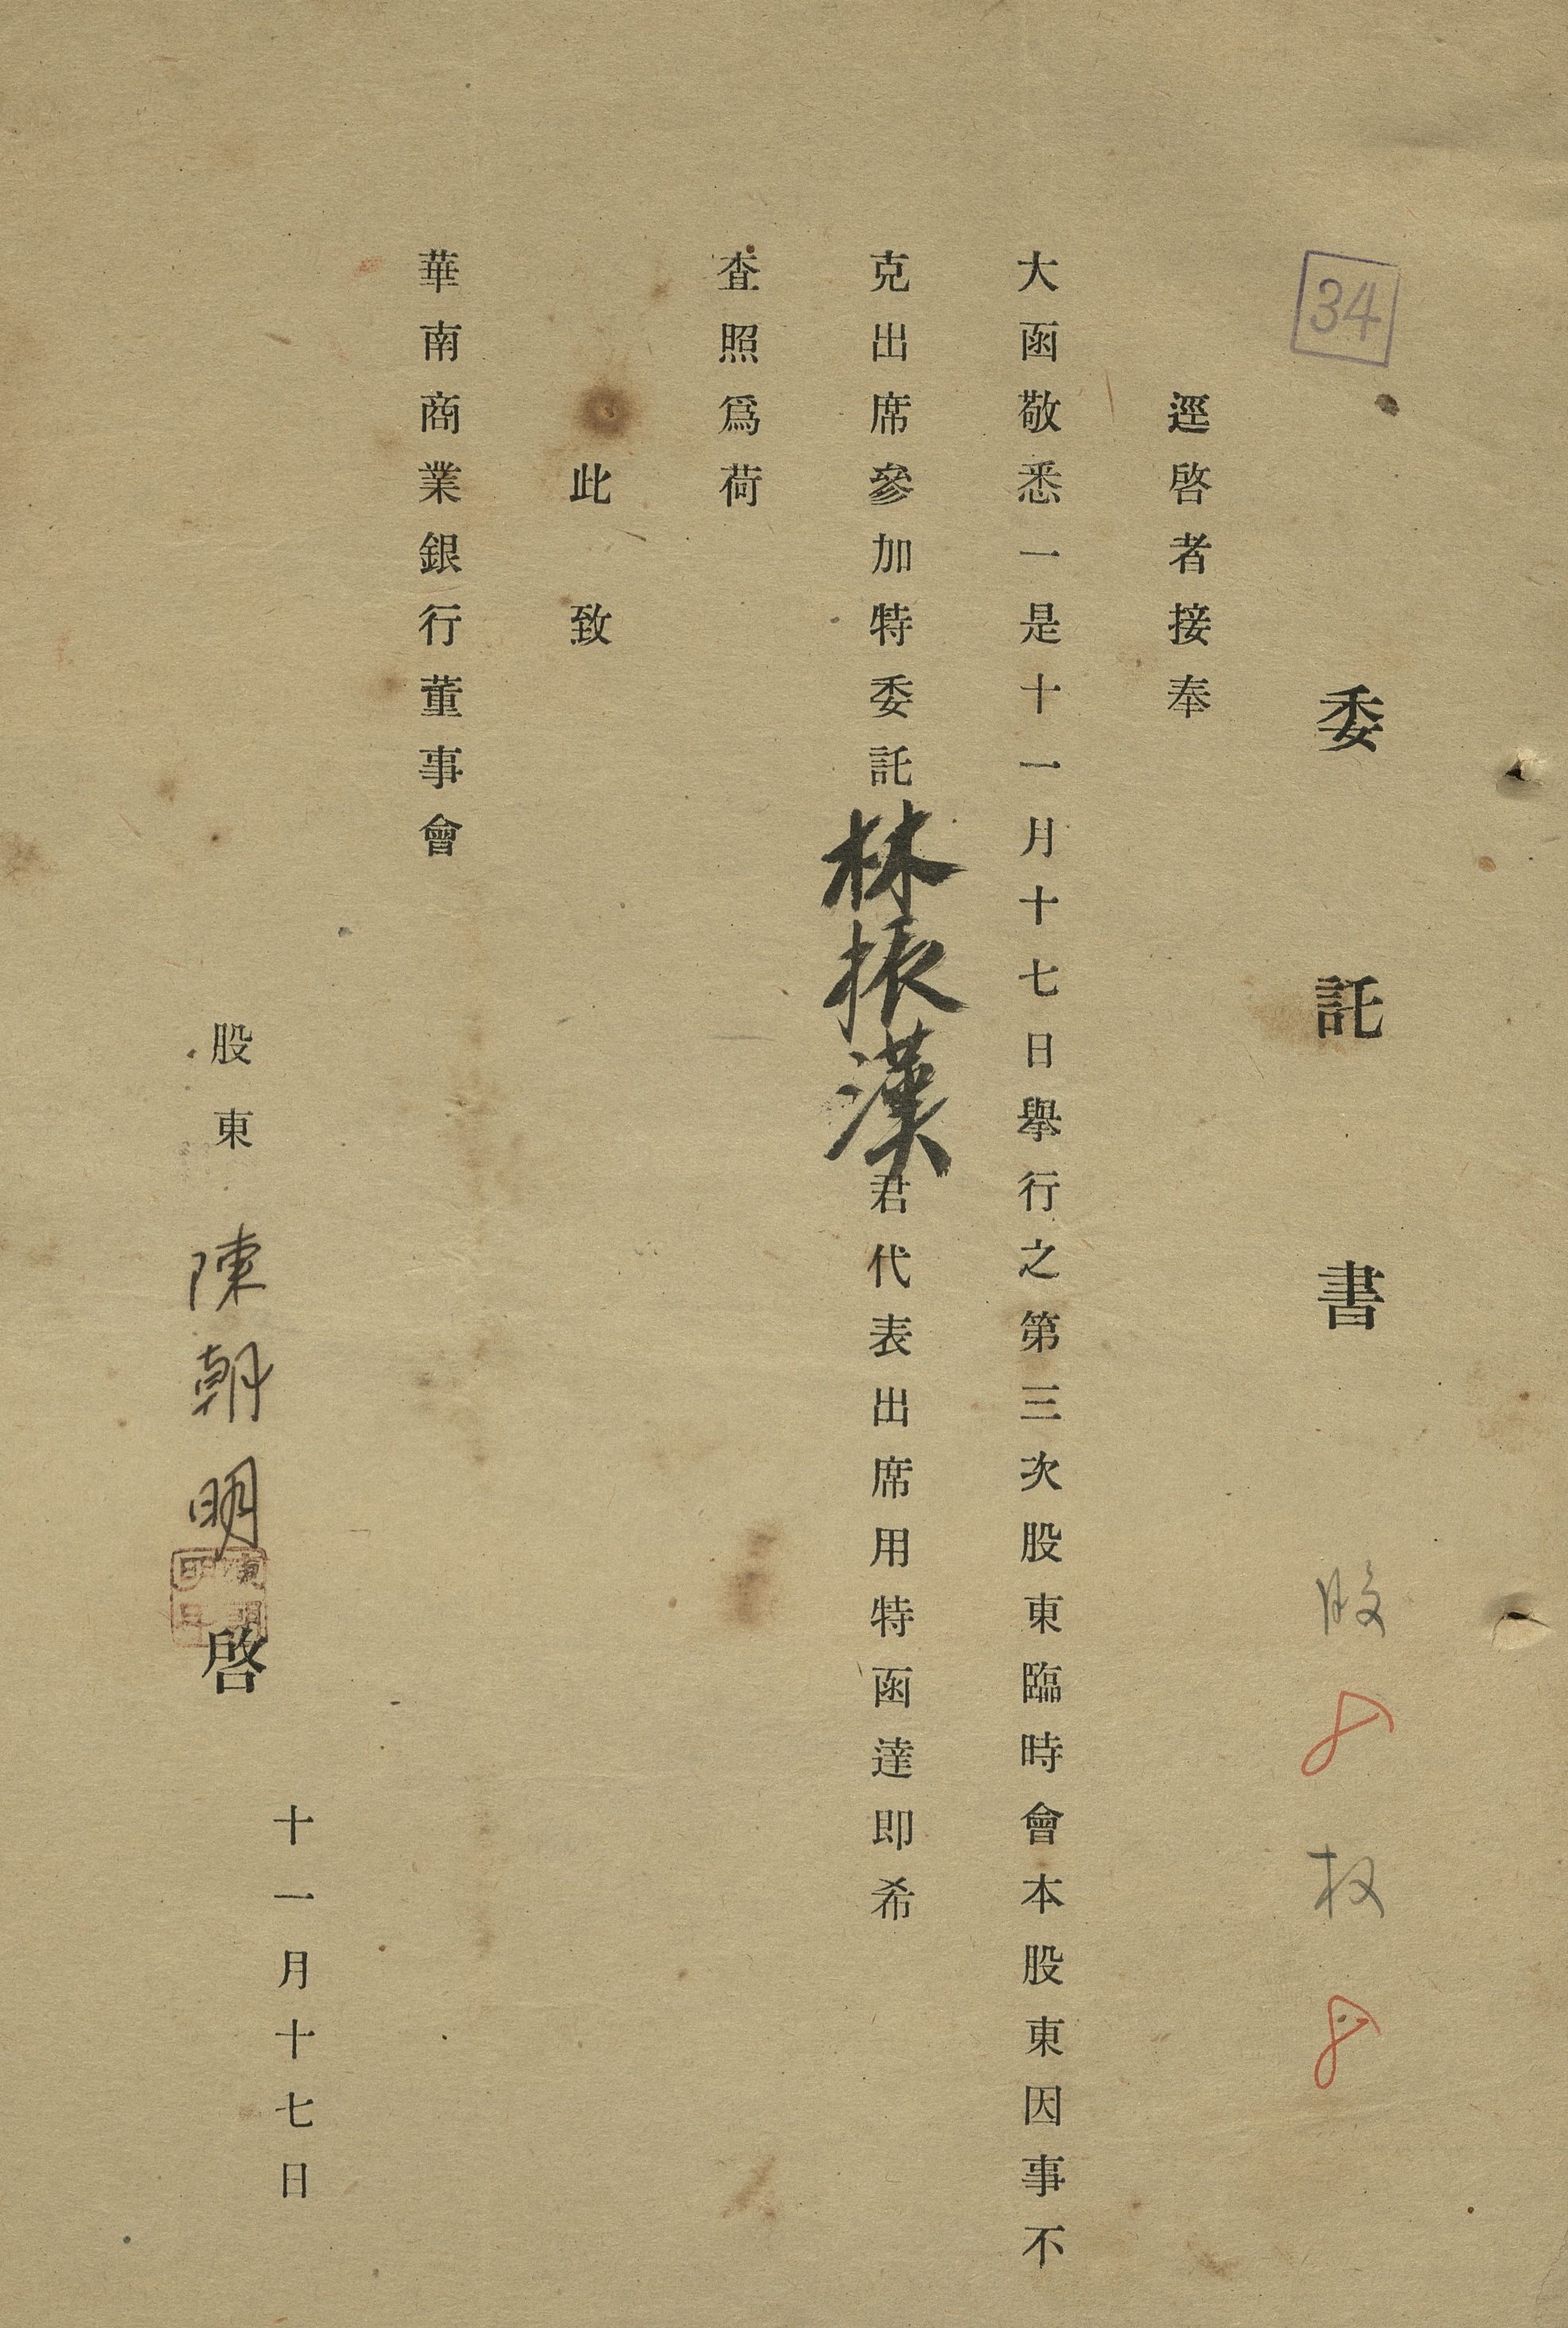 34
委託書
股 8 权 8
逕啓者接奉
大函敬悉一是十一月十七日舉行之第三次股東臨時會本股東因事不
克出席參加特委託林振漢君代表出席用特函達即希
查照爲荷
此致
華南商業銀行董事會
十一月十七日
股東 陳朝明 啓